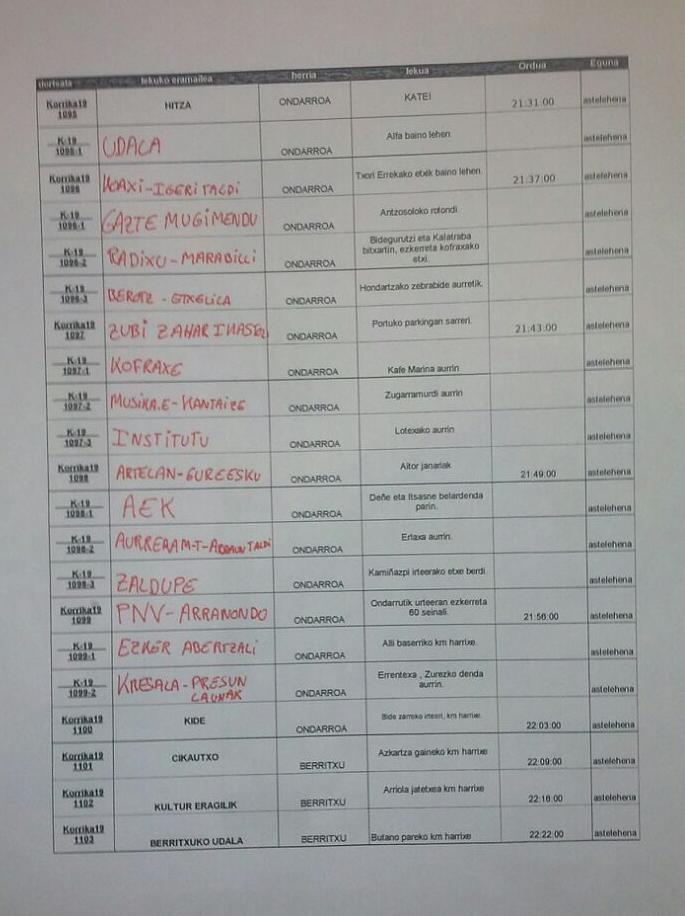 dortsala lekuko eramailea herria lekua Ordua Eguna
Korrika19 1095 HITZA ONDARROA KATEI 21:31:00 astelehena
K-19 1095-1 UDALA ONDARROA Alfa baino lehen astelehena
Korrika19 1096 KOAXI-IGERI TALDI ONDARROA Txori Errekako etxik baino lehen. 21:37:00 astelehena
K-19 1096-1 GAZTE MUGIMENDU ONDARROA Antzosoloko rotondi. astelehena
K-19 1096-2 RADIXU-MARABILLI ONDARROA Bidegurutzi eta Kalatraba
bitxartin, ezkerreta kofraxako
etxi. astelehena
K-19 1096-3 ONDARROA Hondartzako zebrabide aurretik. astelehena
Korrika19 1097 ZUBI ZAHAR ONDARROA Portuko parkingan sarreri. 21:43:00 astelehena
K-19 1097-1 KOFRAXE ONDARROA Kafe Marina aurrin astelehena
K-19 1097-2 MUSIKA.E-KANTAIZE ONDARROA Zugarramurdi aurrin astelehena
K-19 1097-3 INSTITUTU ONDARROA Lotexako aurrin astelehena
Korrika19 1098 ARTELAN-GUREESKU ONDARROA Aitor janariak 21:49:00 astelehena
K-19 1098-1 AEK ONDARROA Deñe eta Itsasne belardenda
parin. astelehena
K-19 1098-2 AURRERA M-T-ARRAUN TALDI ONDARROA Erlaxa aurrin. astelehena
K-19 1098-3 ZALDUPE ONDARROA Kamiñazpi irteerako etxe berdi. astelehena
Korrika19 1099 PNV-ARRANONDO ONDARROA Ondarrutik urteeran ezkerreta
60 seinali. 21:56:00 astelehena
K-19 1099-1 EZKER ABERTZALI ONDARROA Alli baserriko km harrixe. astelehena
K-19 1099-2 KRESALA-PRESUN
LAUNAK ONDARROA Errentexa , Zurezko denda
aurrin. astelehena
Korrika19 1100 KIDE ONDARROA Bide zarreko irteeri, km harrixe. 22:03:00 astelehena
Korrika19 1101 CIKAUTXO BERRITXU Azkartza gaineko km harrixe 22:09:00 astelehena
Korrika19 1102 KULTUR ERAGILIK BERRITXU Arriola jatetxea km harrixe 22:16:00 astelehena
Korrika19 1103 BERRITXUKO UDALA BERRITXU Butano pareko km harrixe 22:22:00 astelehena